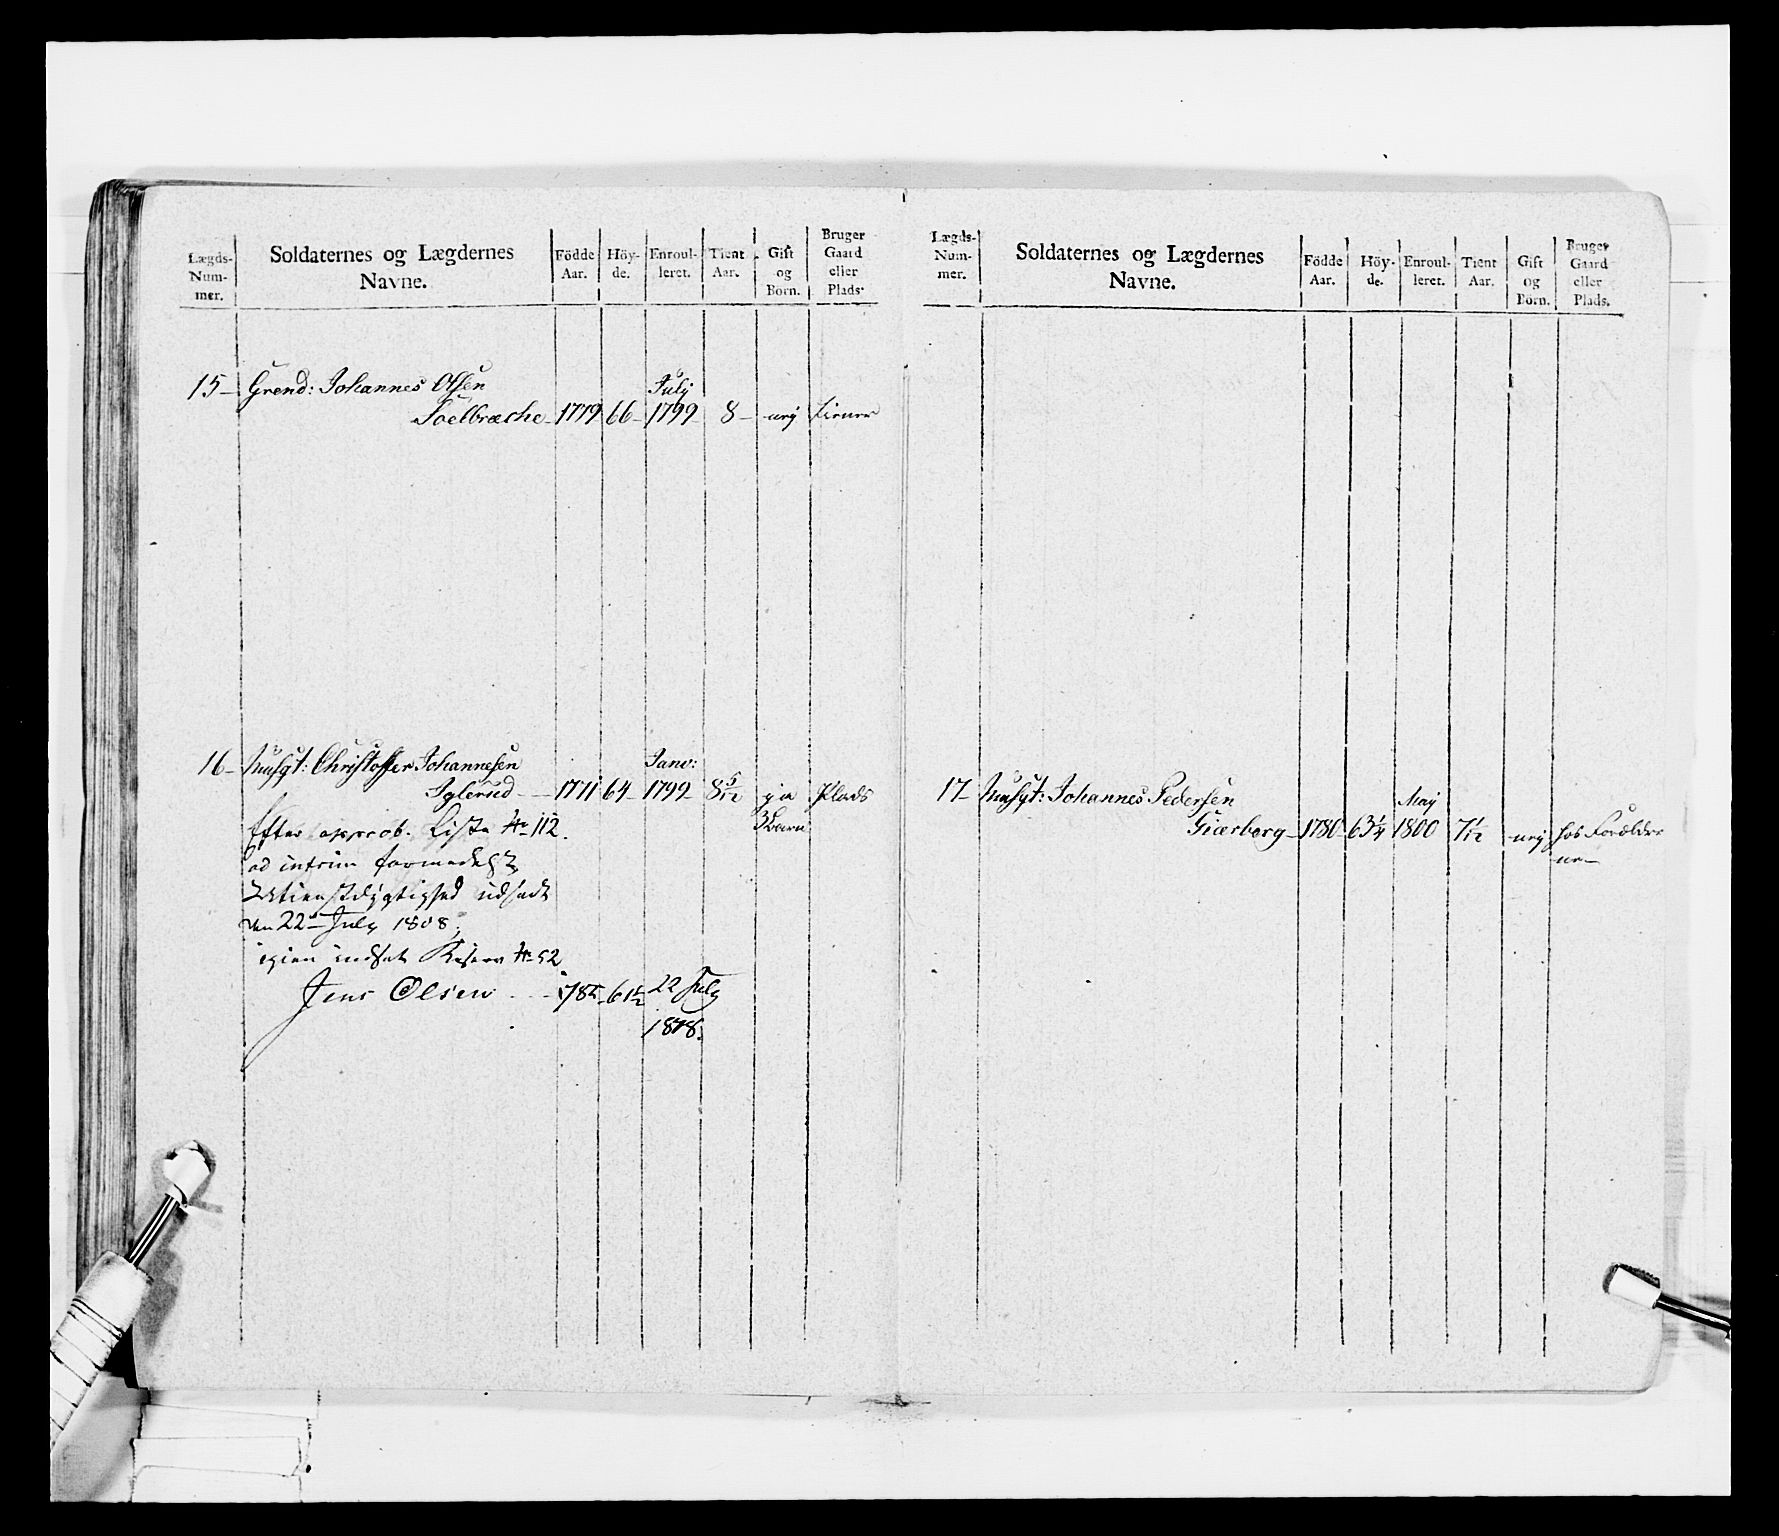 Lægds-
Num-
mer.
Soldaternes og Lægdernes
Navne.
Födde
Aar.
Höy-
de.
Enroul-
leret.
Tient
Aar.
Gift
og
Börn.
Bruger
Gaard
eller
Plads.
15 - Grend: Johannes Olsen
July
Soelbræche - 1779 66 - 1799 - 8 - nej Tiener
16 - Musqt: Christoffer Johannesen
Janv:
Iglerud - 1771 64 - 1799 - 8 5/12 ja Plads
3 Børn
Efter approb. Liste No 112
ad intrim formedelst
Utienstdygtighed udsadt
den 22de July 1808,
igien indsat Reserv No 52
Jens Olsen - 61½ 22 July
1808.
Lægds-
Num-
mer.
Soldaternes og Lægdernes
Navne.
Födde
Aar.
Höy-
de.
Enroul-
leret.
Tient
Aar.
Gift
og
Börn.
Bruger
Gaard
eller
Plads.
17 - Musqt: Johannes Pedersen
May
Giærberg - 1780 - 63¼ 1800 7 1/12 - nej hos Forældre
ne -